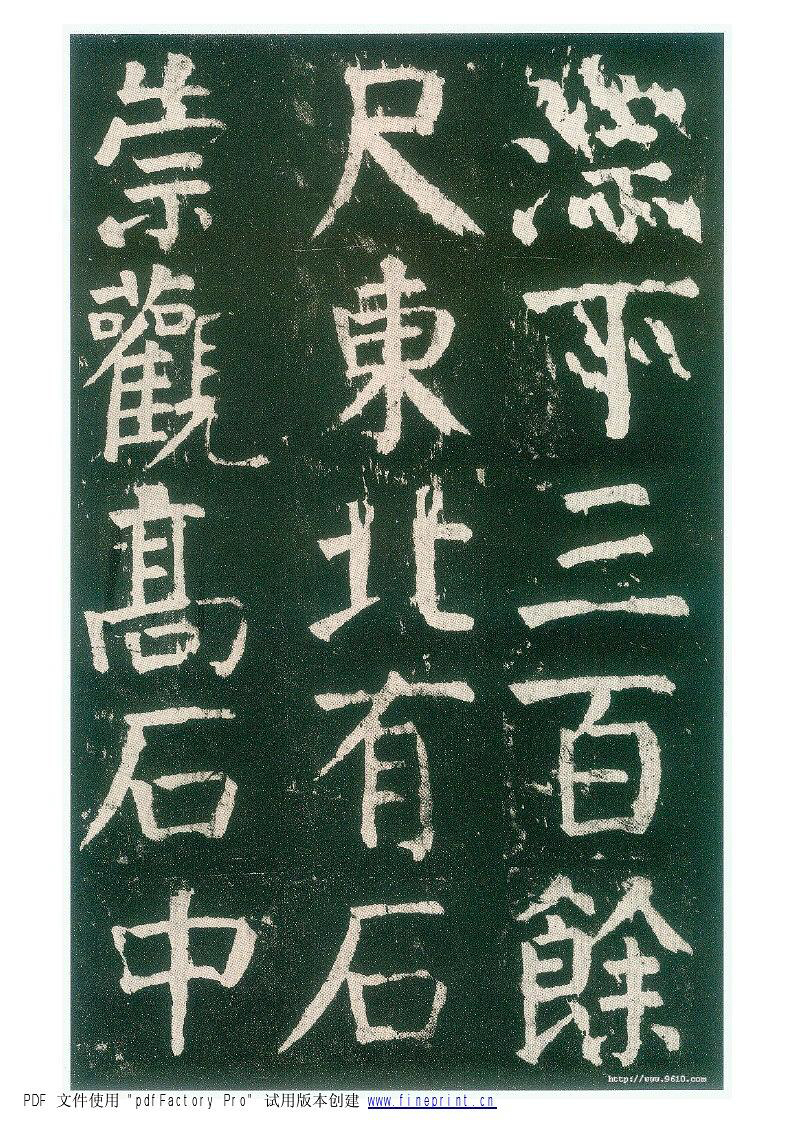 淙下三百餘
尺東北有石
崇觀髙石中
http://www.9610.com
PDF 文件使用 "pdfFactory Pro" 试用版本创建 www.fineprint.cn